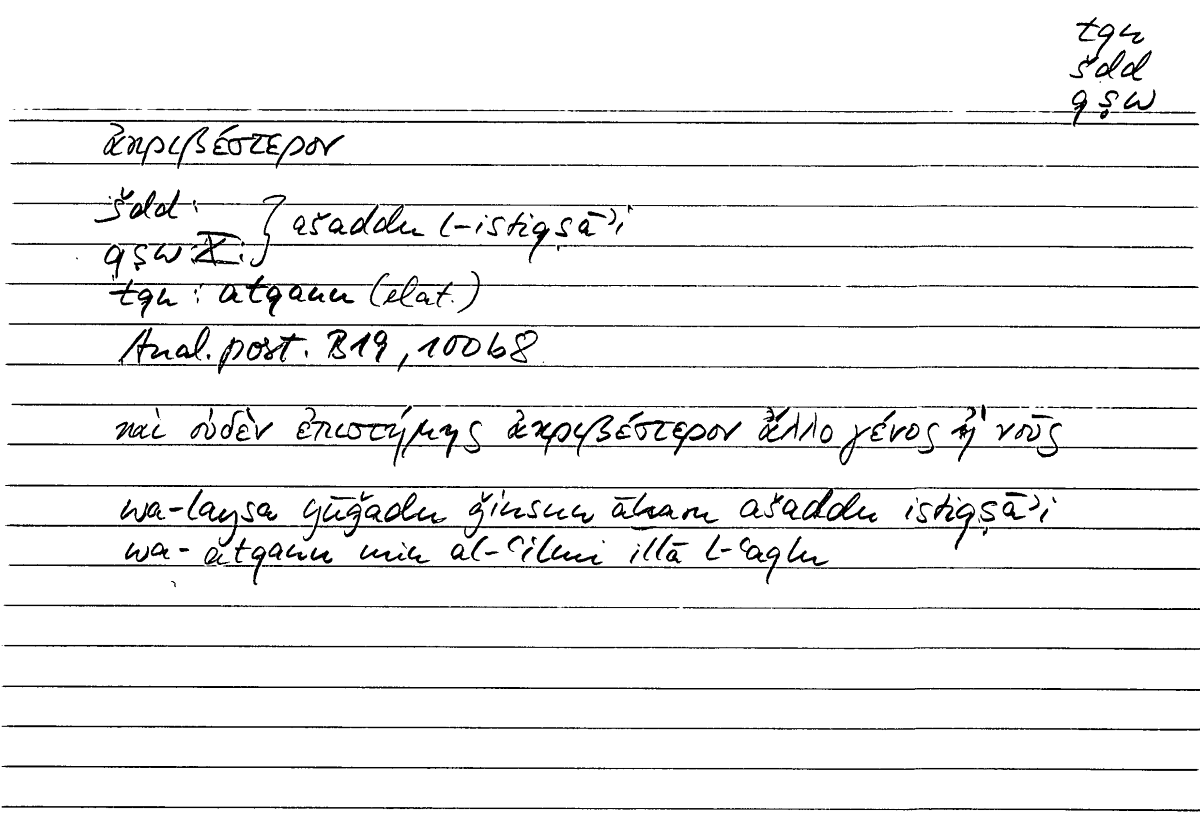 tqn
šdd
qṣw
ἀκριβέστερον
šdd:
qṣw X: } ašaddu l-istiqṣāʾi
tqn: atqanu (elat.)
Anal. post. B19, 100b8
καὶ οὐδὲν ἐπιστήμης ἀκριβέστερον ἄλλο γένος ἢ νοῦς
wa-laysa yūǧadu ǧinsun āḫaru ašaddu istiqṣāʾi
wa-atqanu min al-ʿilmi illā l-ʿaqlu